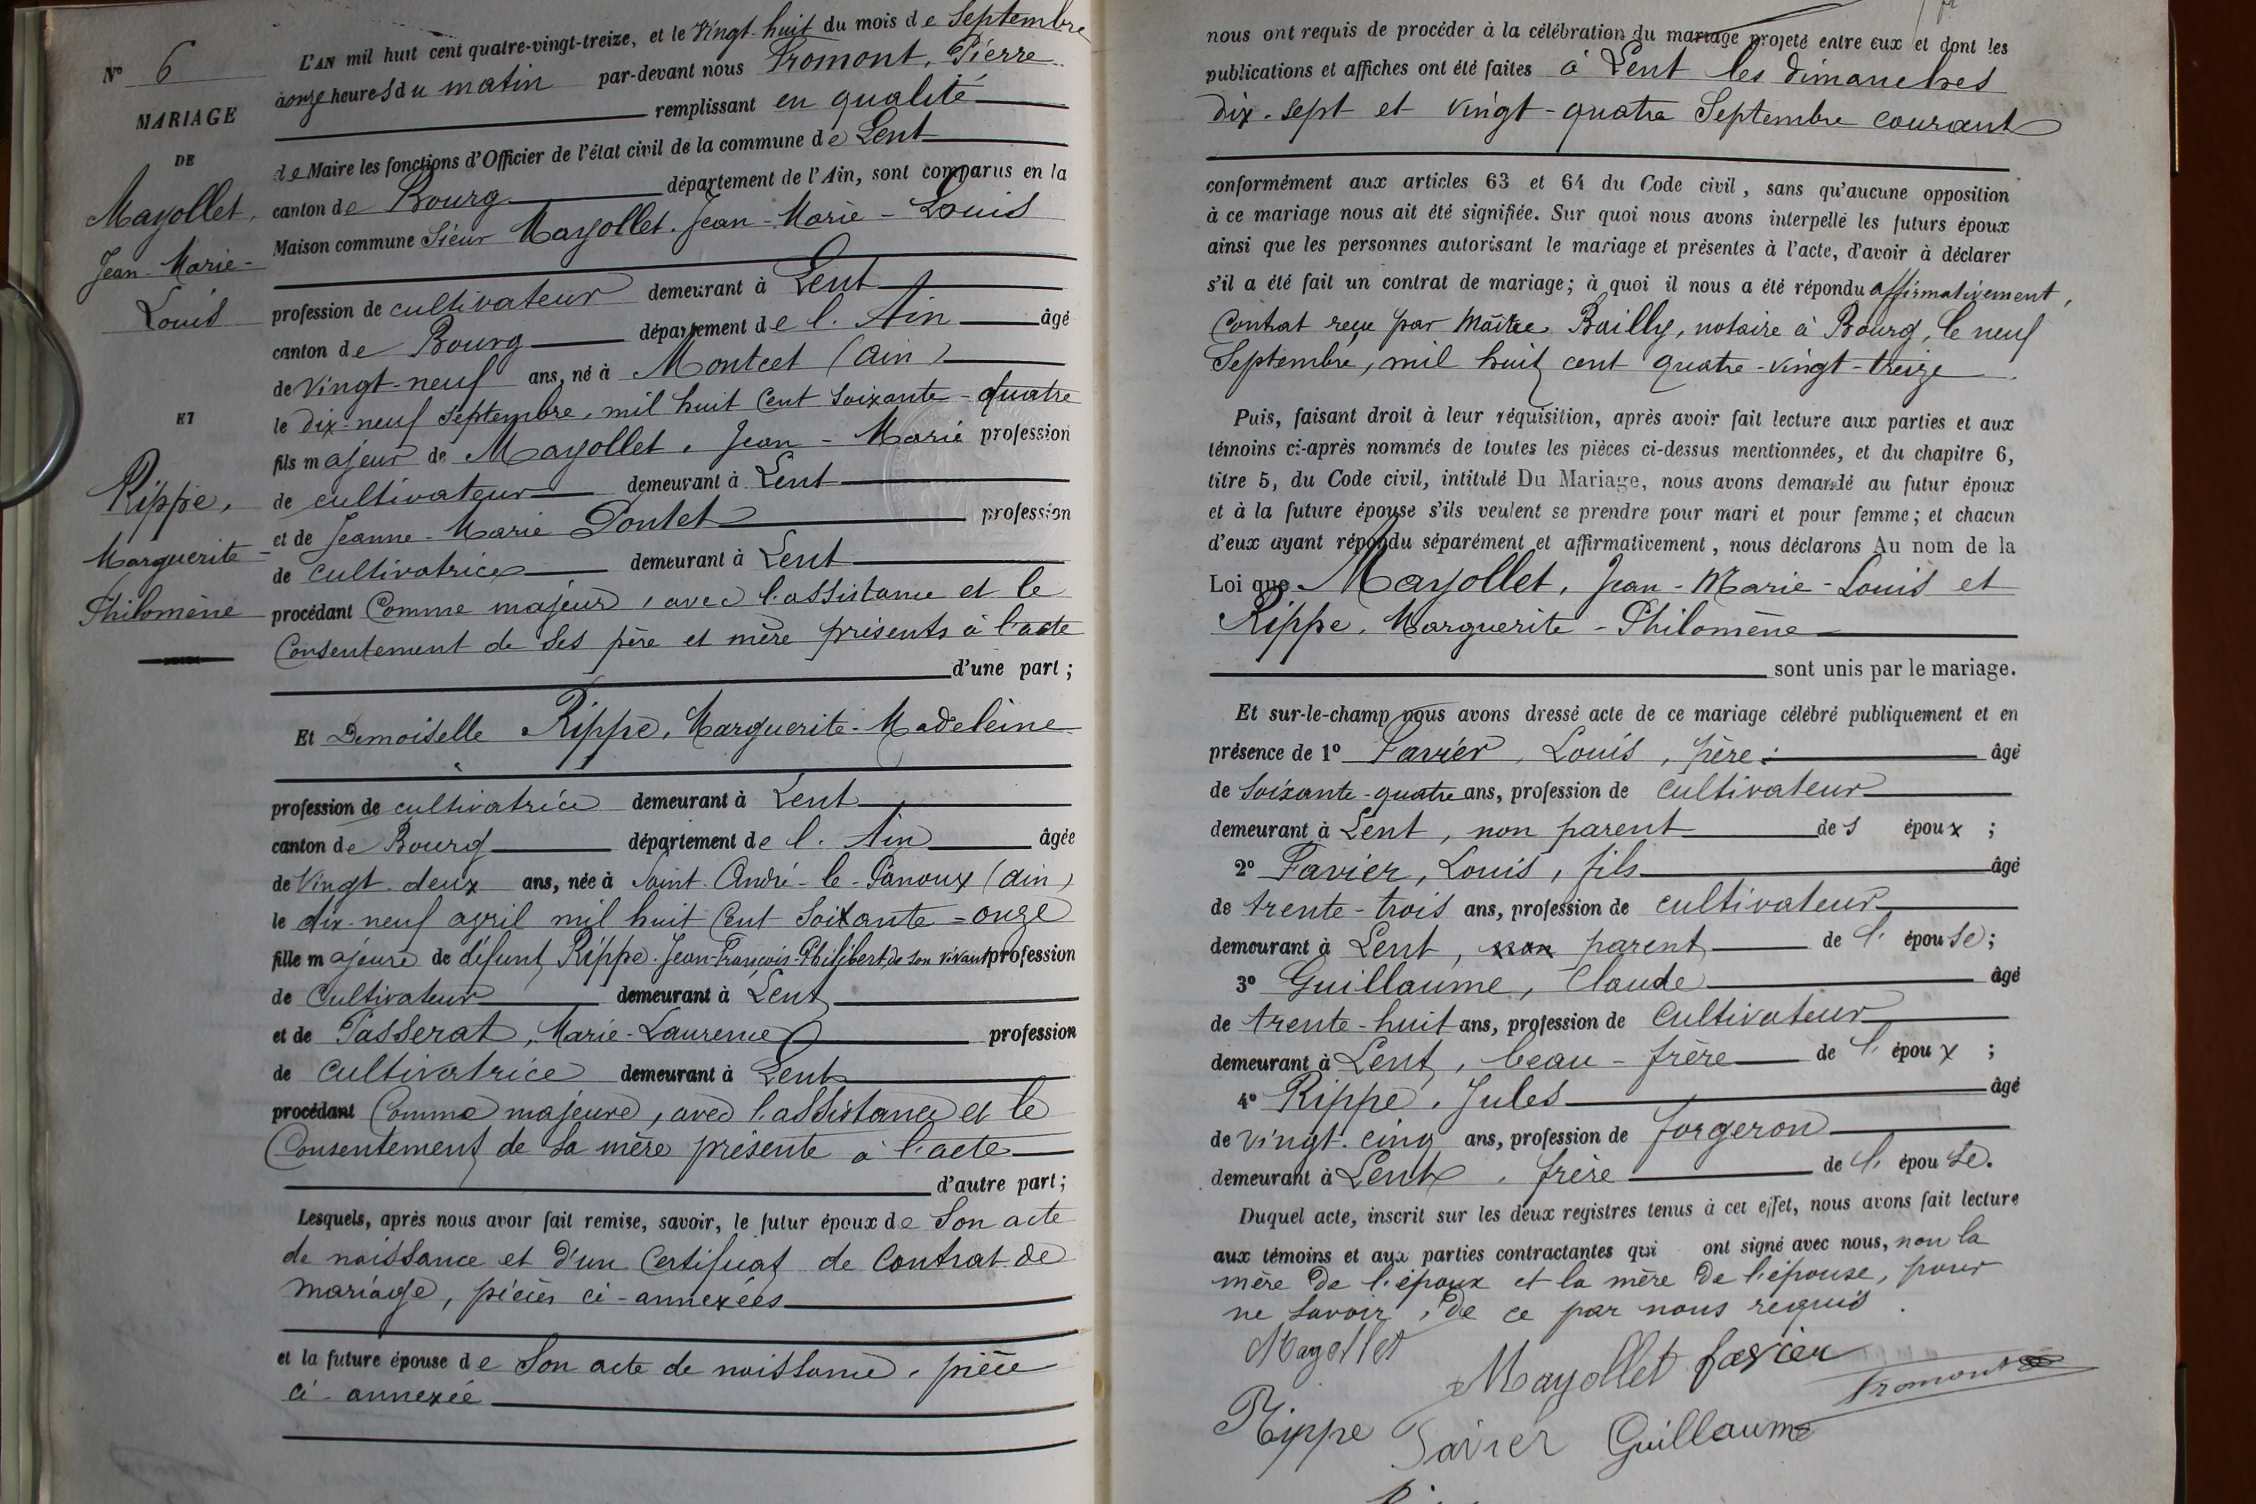 N° 6
MARIAGE
DE
Mayollet,
Jean-Marie-
Louis
ET
Rippe,
Marguerite-
Philomène
L'AN mil huit cent quatre-vingt-treize, et le vingt-huit du mois de Septembre
à onze heures du matin par-devant nous Fromont, Pierre
remplissant en qualité
de Maire les fonctions d'Officier de l'état civil de la commune de Lent
canton de Bourg département de l'Ain, sont comparus en la
Maison commune Sieur Mayollet, Jean-Marie-Louis
profession de cultivateur demeurant à Lent
canton de Bourg département de l'Ain âgé
de vingt-neuf ans, né à Montcet (Ain)
le dix-neuf septembre, mil huit cent soixante-quatre
fils majeur de Mayollet, Jean-Marie profession
de cultivateur demeurant à Lent
et de Jeanne-Marie Pontet profession
de cultivatrice demeurant à Lent
procédant comme majeur, avec l'assistance et le
consentement de ses père et mère présents à l'acte
d'une part;
Et Demoiselle Rippe, Marguerite-Madeleine
profession de cultivatrice demeurant à Lent
canton de Bourg département de l'Ain âgée
de vingt-deux ans, née à Saint-André-le-Panoux (Ain)
le dix-neuf avril mil huit cent soixante-onze
fille majeure de défunt Rippe Jean-François-Philibert, de son vivant profession
de cultivateur demeurant à Lent
et de Passerat, Marie-Laurence profession
de cultivatrice demeurant à Lent
procédant comme majeure, avec l'assistance et le
consentement de sa mère présente à l'acte
d'autre part;
Lesquels, après nous avoir fait remise, savoir, le futur époux de son acte
de naissance et d'un certificat de contrat de
mariage, pièces ci-annexées
et la future épouse de son acte de naissance, pièce
ci-annexée
nous ont requis de procéder à la célébration du mariage projeté entre eux et dont les
publications et affiches ont été faites à Lent les dimanches
dix-sept et vingt-quatre Septembre courant
conformément aux articles 63 et 64 du Code civil, sans qu'aucune opposition
à ce mariage nous ait été signifiée. Sur quoi nous avons interpellé les futurs époux
ainsi que les personnes autorisant le mariage et présentes à l'acte, d'avoir à déclarer
s'il a été fait un contrat de mariage; à quoi il nous a été répondu affirmativement,
Contrat reçu par Maître Bailly, notaire à Bourg, le neuf
Septembre, mil huit cent quatre-vingt-treize.
Puis, faisant droit à leur réquisition, après avoir fait lecture aux parties et aux
témoins ci-après nommés de toutes les pièces ci-dessus mentionnées, et du chapitre 6,
titre 5, du Code civil, intitulé Du Mariage, nous avons demandé au futur époux
et à la future épouse s'ils veulent se prendre pour mari et pour femme; et chacun
d'eux ayant répondu séparément et affirmativement, nous déclarons Au nom de la
Loi que Mayollet, Jean-Marie-Louis et
Rippe, Marguerite-Philomène
sont unis par le mariage.
Et sur-le-champ nous avons dressé acte de ce mariage célébré publiquement et en
présence de 1° Favier, Louis, père. âgé
de soixante-quatre ans, profession de cultivateur
demeurant à Lent, non parent des époux;
2° Favier, Louis, fils âgé
de trente-trois ans, profession de cultivateur
demeurant à Lent, non parent de l'épouse;
3° Guillaume, Claude âgé
de trente-huit ans, profession de cultivateur
demeurant à Lent, beau-frère de l'époux;
4° Rippe, Jules âgé
de vingt-cinq ans, profession de forgeron
demeurant à Lent, frère de l'épouse.
Duquel acte, inscrit sur les deux registres tenus à cet effet, nous avons fait lecture
aux témoins et aux parties contractantes qui ont signé avec nous, non la
mère de l'époux et la mère de l'épouse, pour
ne savoir, de ce par nous requis.
Mayollet
Mayollet favier
Fromont
Rippe Favier Guillaume